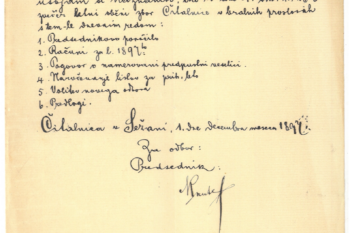 zbor Čitalnice v bralnih prostorih
s sledečim redom:
1. Predsednikovo poročilo
2. Računi za l. 1897
3. Pogovor o nameravani predpustni veselici
4. Naročevanje listov za prih. leto
5. Volitev novega odbora
6. Predlogi.
Čitalnica v Sežani, 1. dne decembra meseca 1897.
Za odbor:
Predsednik: